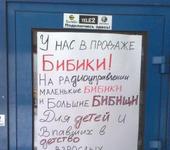 TELE2
Подключись здесь!
У НАС В ПРОДАЖЕ
БИБИКИ!
НА РАДИОУПРАВЛЕНИИ
МАЛЕНЬКИЕ БИБИКИ
И БОЛЬШИЕ БИБИЩИ
ДЛЯ ДЕТЕЙ И
ВПАВШИХ В
ДЕТСТВО
ВЗРОСЛЫХ